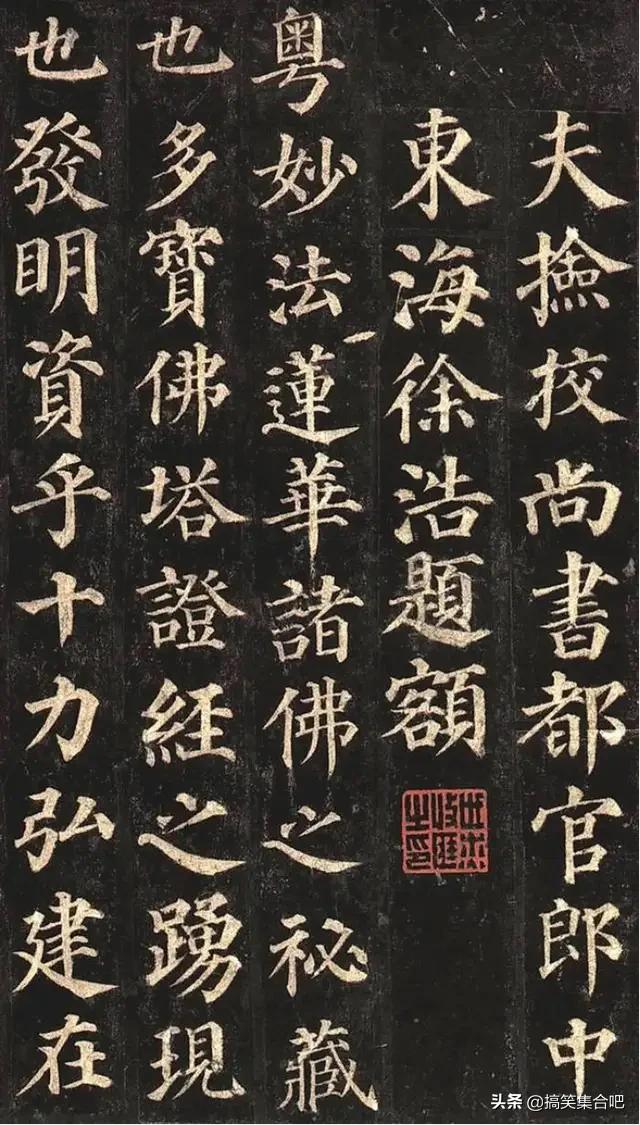 夫撿挍尚書都官郎中
東海徐浩題額
粵妙法蓮華諸佛之祕藏
也多寶佛塔證經之踴現
也發明資乎十力弘建在
头条 @搞笑集合吧